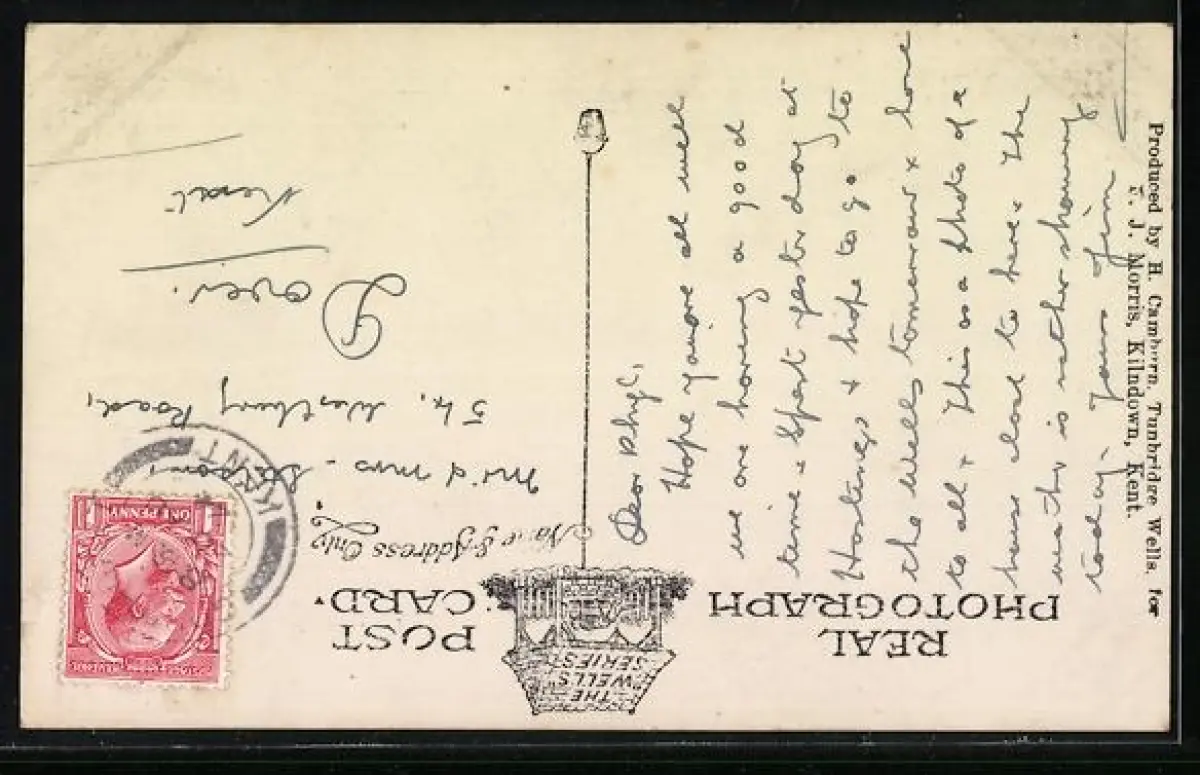 REAL
PHOTOGRAPH
THE
"WELLS"
SERIES
POST
CARD
Name & Address Only
Mr & Mrs
54, Westbury Road,
Dover.
Kent
ONE PENNY
KENT
Dear
Hope you are all well
we are having a good
time. Spent yesterday at
Hastings & hope to go to
the wells tomorrow & love
to all. This is a photo of a
house close to here. The
weather is rather showery
today. Yours Jim
Produced by H. Camburn, Tunbridge Wells, for
F. J. Morris, Kilndown, Kent.